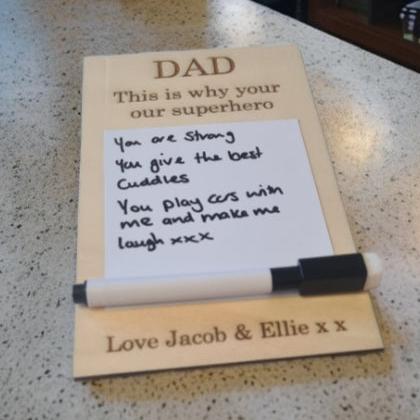 DAD
This is why your
our superhero
You are strong
You give the best
Cuddles
You play cars with
me and make me
laugh xxx
Love Jacob & Ellie x x